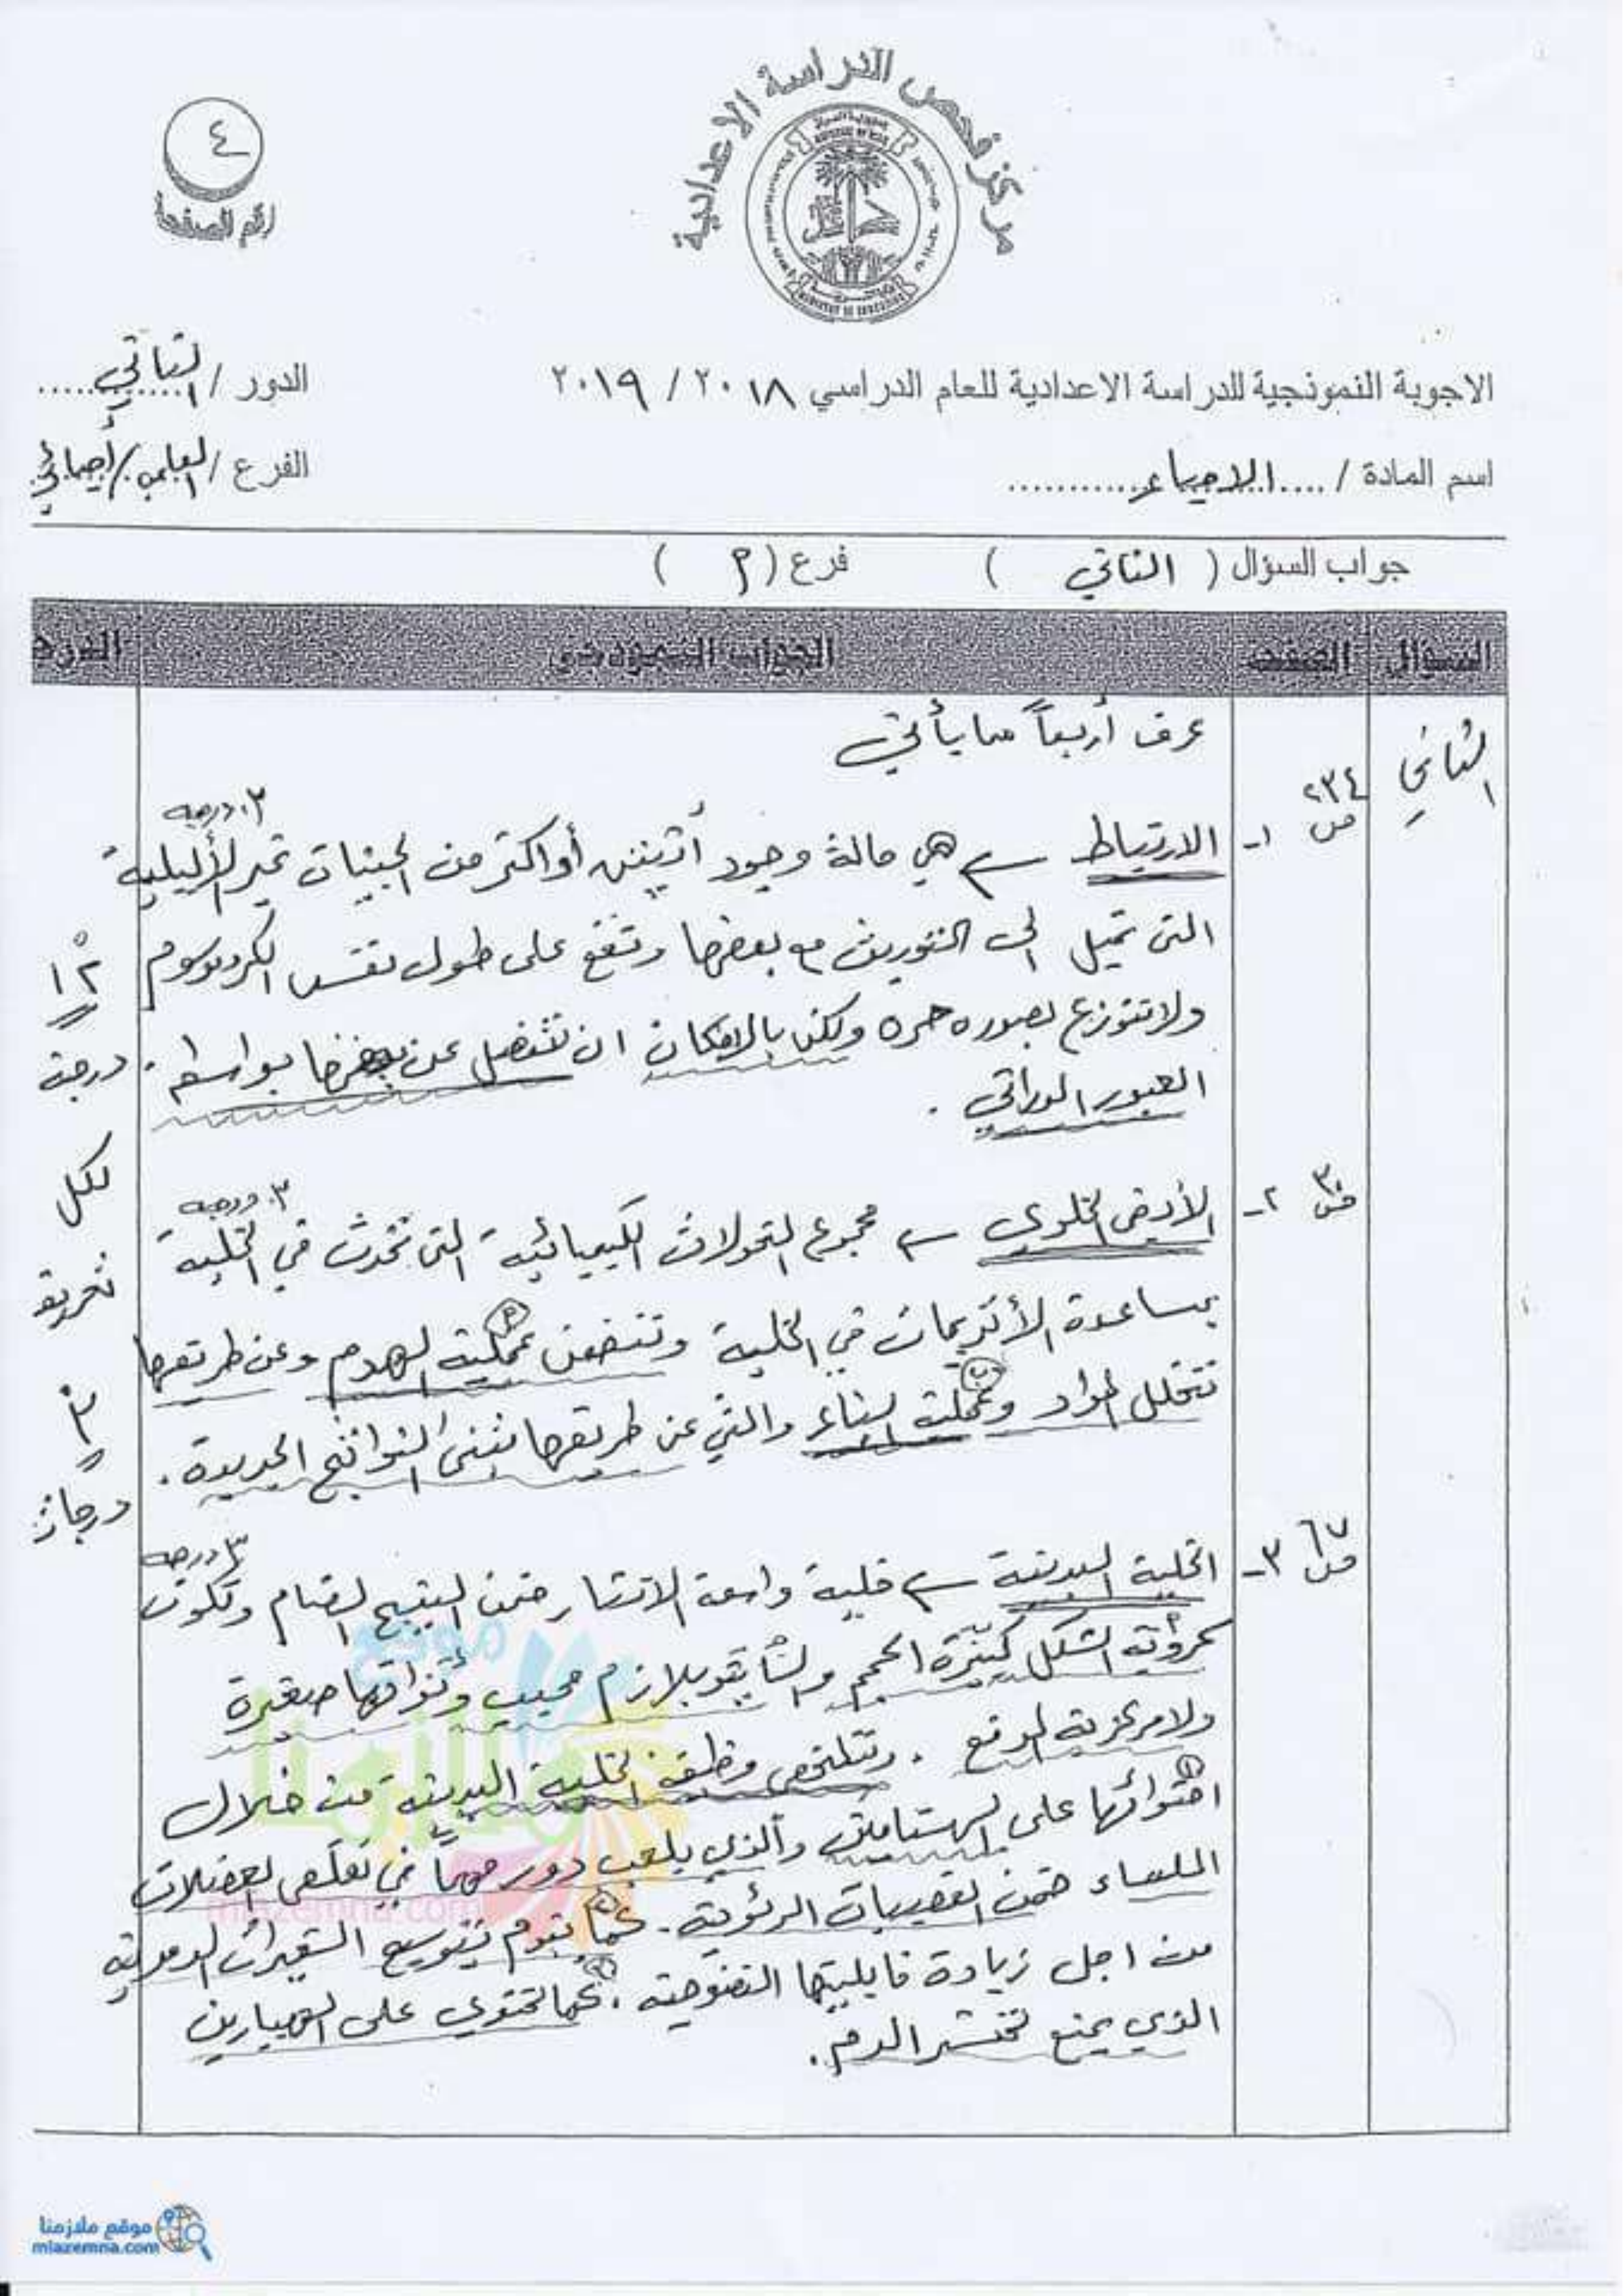 مركز فحص الدراسة الاعدادية
٤
رقم الصفحة
الاجوبة النموذجية للدراسة الاعدادية للعام الدراسي ٢٠١٨ / ٢٠١٩
الدور / الثاني
اسم المادة / الاحياء
الفرع / العلمي / أحيائي
جواب السؤال ( الثاني ) فرع ( أ )
السؤال الصفحة الجواب النموذجي الدرجة
الثاني عرف أربعاً مما يأتي
ص ٢٣٤ ١- الارتباط هي حالة وجود أثنين أو اكثر من الجينات غير الأليلية ٣ درجه
التي تميل الى التوريث مع بعضها وتقع على طول نفس الكروموسوم
ولا تتوزع بصوره حره ولكن بالامكان ان تنفصل عن بعضها بواسطه
العبور الوراثي .
١٢ درجة لكل تعريف ٣ درجات
ص ٣٠ ٢- الأيض الخلوي مجموع التحولات الكيميائية التي تحدث في الخلية ٣ درجه
بمساعدة الأنزيمات في الخلية وتتضمن عملية الهدم وعن طريقها
تتحلل المواد وعملية البناء والتي عن طريقها تبنى النواتج الجديدة .
ص ٦٧ ٣- الخلية البدينة خلية واسعة الانتشار ضمن النسيج الضام وتكون ٣ درجه
كروية الشكل كبيرة الحجم والسايتوبلازم محبب ونواتها صغيرة
ولا مركزية الموقع . وتتلخص وظيفة الخلية البدينة من خلال
احتوائها على الهستامين والذي يلعب دور مهماً في تقلص العضلات
الملساء ضمن القصيبات الرئوية . كما تقوم بتوسيع الشعيرات الدموية
من اجل زيادة قابليتها النضوحية . كما تحتوي على الهيبارين
الذي يمنع تخثر الدم .
موقع ملازمنا
mlazemna.com
موقع ملازمنا
mlazemna.com